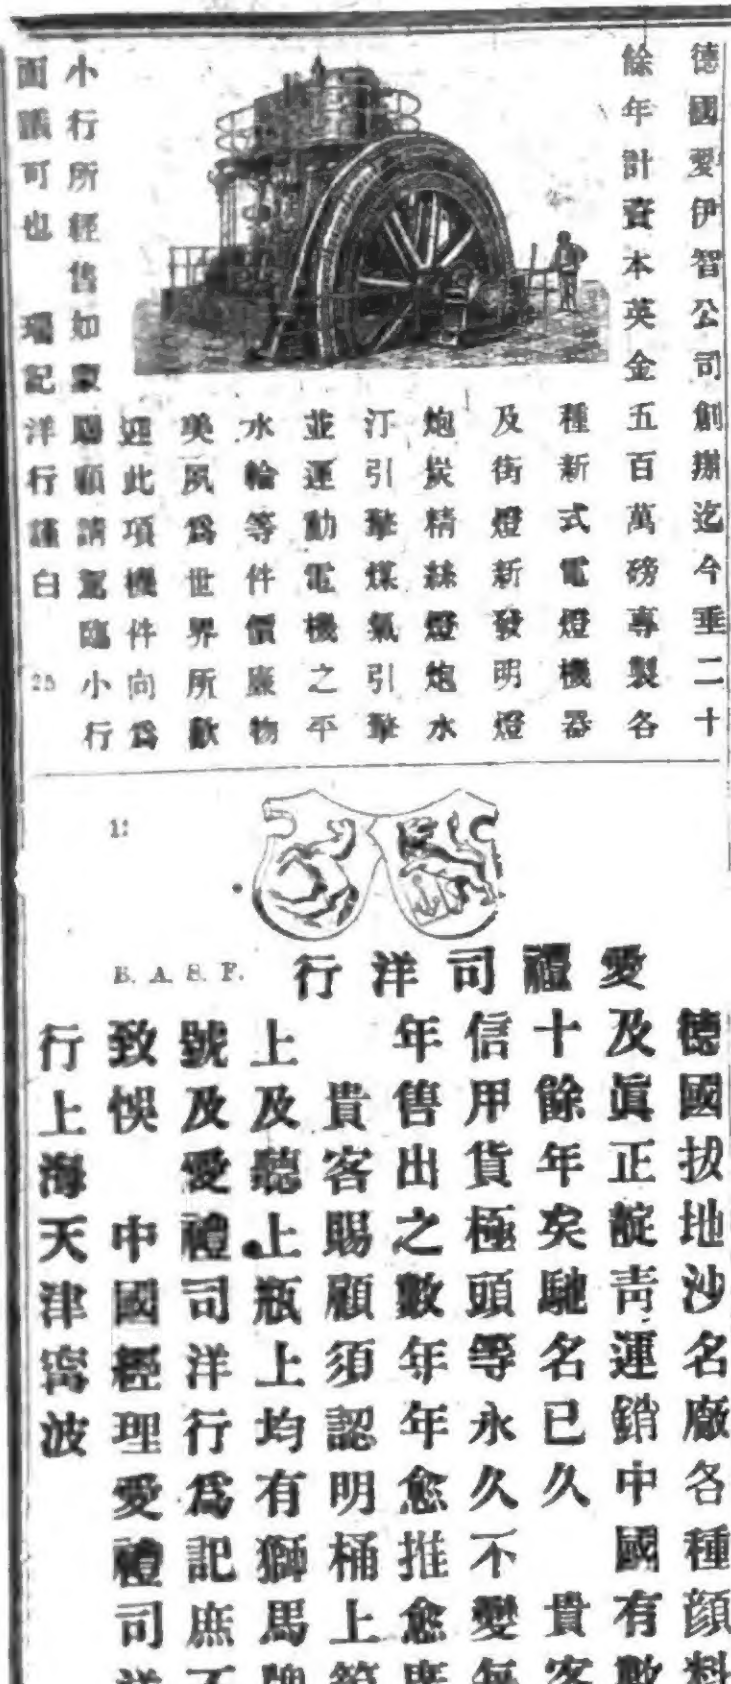 德國愛伊智公司創辦迄今垂二十
餘年計資本英金五百萬磅專製各
種新式電燈機器
及街燈新發明燈
炮炭精絲燈炮水
汀引擎煤氣引擎
並運動電機之平
水輪等件價廉物
美夙爲世界所歡
迎此項機件向爲
小行所經售如蒙賜顧請駕臨小行
面議可也 瑞記洋行謹白
25
B. A. S. F.
行洋司禮愛
德國拔地沙名廠各種顏料
及眞正靛靑運銷中國有數
十餘年矣馳名已久 貴客
信甲貨極頭等永久不變無
年售出之數年年愈推愈
貴客賜顧須認明桶上
上及聽上瓶上均有獅馬牌
號及愛禮司洋行爲記庶不
致悞 中國經理愛禮司洋
行上海天津寗波